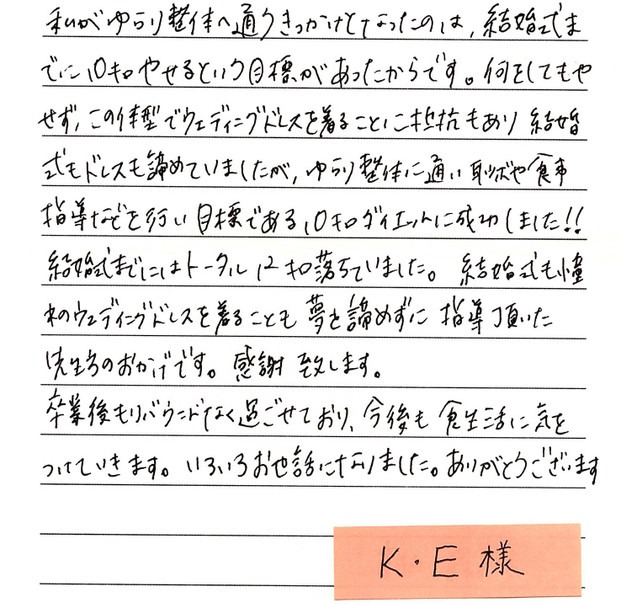 私がゆらり整体へ通うきっかけとなったのは、結婚式ま
でに10キロやせるという目標があったからです。何をしてもや
せず、この体型でウェディングドレスを着ることに抵抗もあり 結婚
式もドレスも諦めていましたが、ゆらり整体に通い 耳ツボや食事
指導などを行い 目標である10キロダイエットに成功しました!!
結婚式までにはトータル12キロ落ちていました。 結婚式も憧
れのウェディングドレスを着ることも 夢を諦めずに 指導頂いた
先生方のおかげです。感謝 致します。
卒業後もリバウンドなく過ごせており、今後も 食生活に気を
つけていきます。いろいろお世話になりました。ありがとうございます
K・E 様